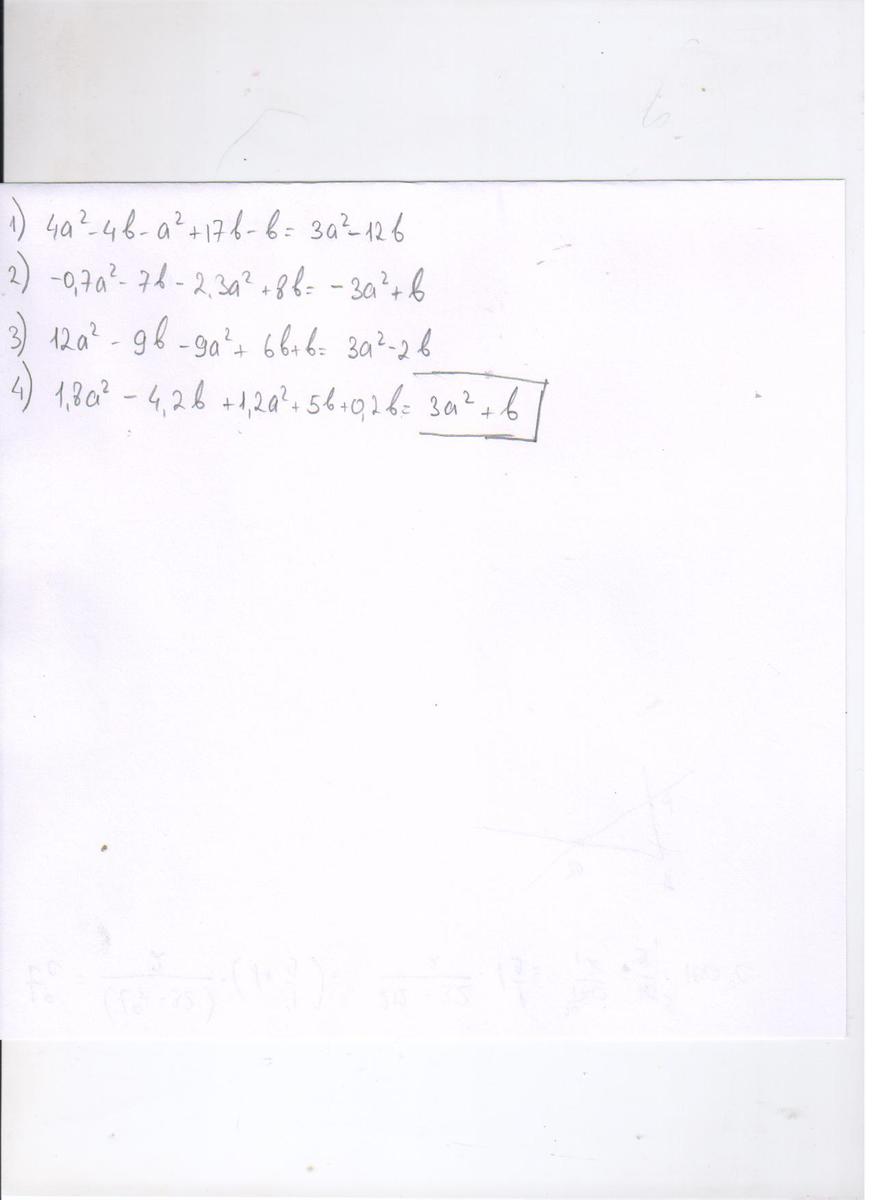 1) 4a² - 4b - a² + 17b - b = 3a² - 12b
2) -0,7a² - 7b - 2,3a² + 8b = -3a² + b
3) 12a² - 9b - 9a² + 6b + b = 3a² - 2b
4) 1,8a² - 4,2b + 1,2a² + 5b + 0,2b = 3a² + b